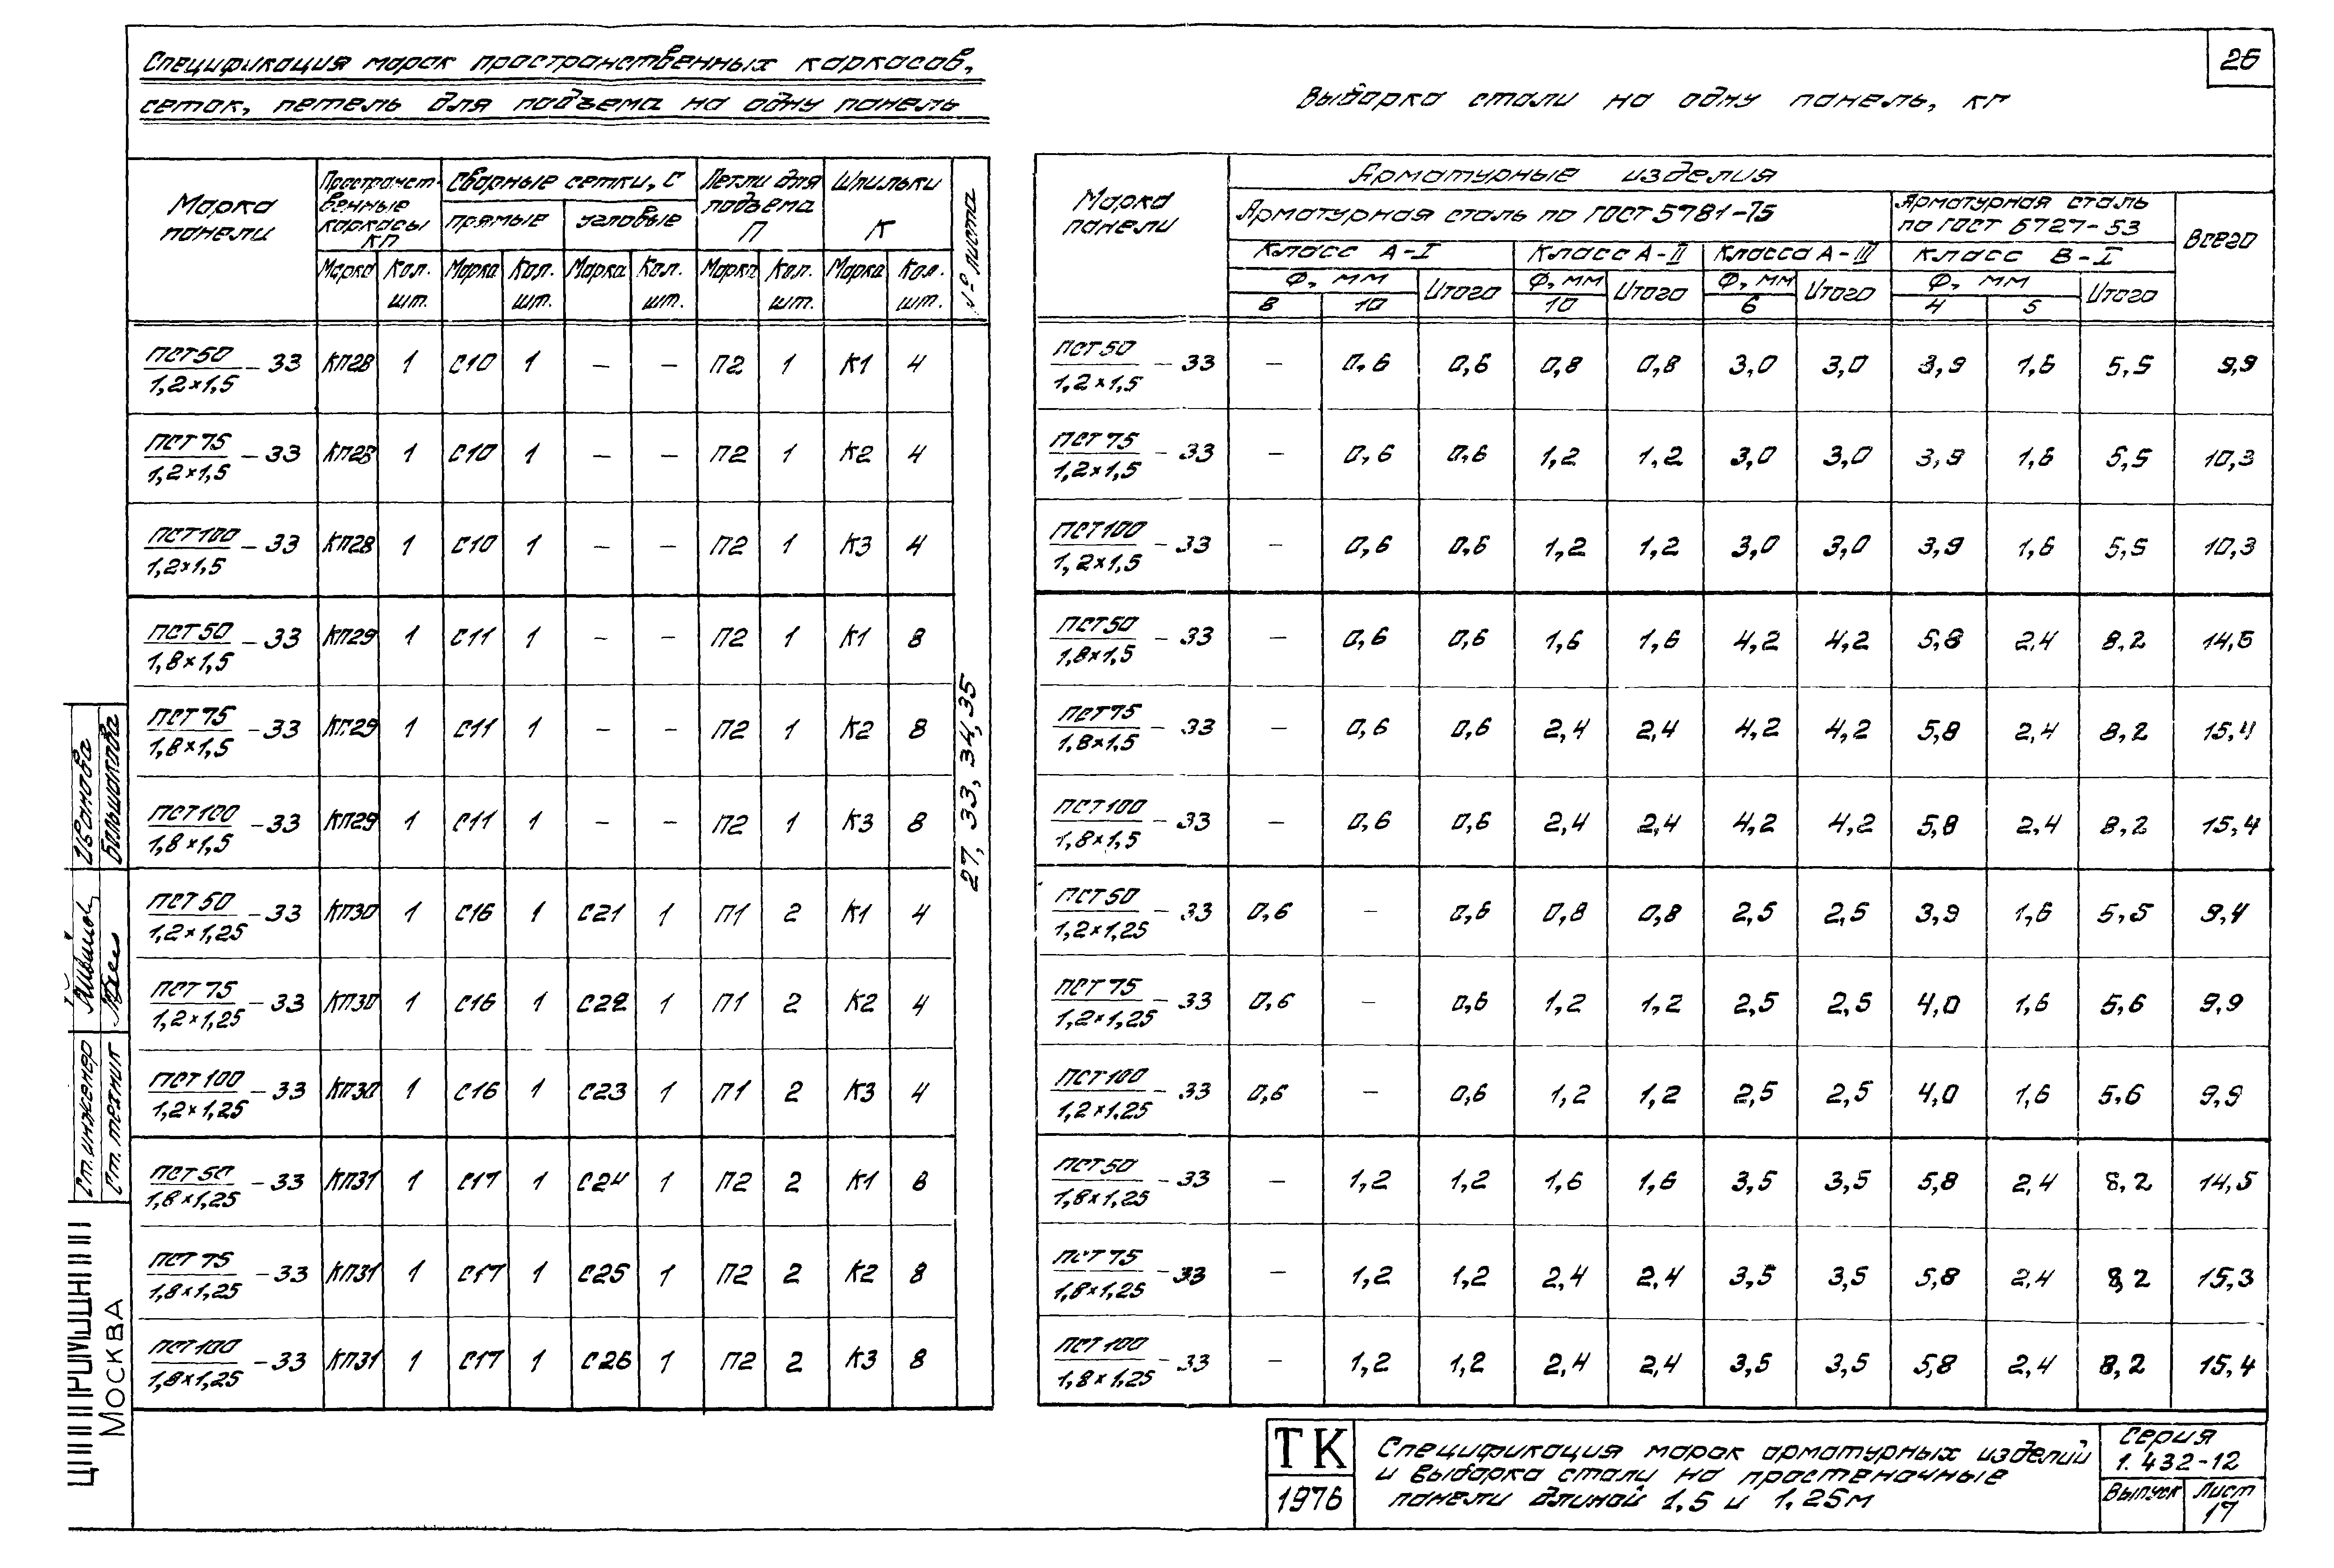 26
Спецификация марок пространственных каркасов,
сеток, петель для подъема на одну панель
Марка панели | Пространственные каркасы КП | Сварные сетки, С | Петли для подъема П | Шпильки К | № листа
прямые | угловые
Марка | Кол. шт. | Марка | Кол. шт. | Марка | Кол. шт. | Марка | Кол. шт. | Марка | Кол. шт.
ПСТ50/1,2×1,5 – 33 | КП28 | 1 | С10 | 1 | – | – | П2 | 1 | К1 | 4
ПСТ75/1,2×1,5 – 33 | КП28 | 1 | С10 | 1 | – | – | П2 | 1 | К2 | 4
ПСТ100/1,2×1,5 – 33 | КП28 | 1 | С10 | 1 | – | – | П2 | 1 | К3 | 4
ПСТ50/1,8×1,5 – 33 | КП29 | 1 | С11 | 1 | – | – | П2 | 1 | К1 | 8
ПСТ75/1,8×1,5 – 33 | КП29 | 1 | С11 | 1 | – | – | П2 | 1 | К2 | 8
ПСТ100/1,8×1,5 – 33 | КП29 | 1 | С11 | 1 | – | – | П2 | 1 | К3 | 8
ПСТ50/1,2×1,25 – 33 | КП30 | 1 | С16 | 1 | С21 | 1 | П1 | 2 | К1 | 4
ПСТ75/1,2×1,25 – 33 | КП30 | 1 | С16 | 1 | С22 | 1 | П1 | 2 | К2 | 4
ПСТ100/1,2×1,25 – 33 | КП30 | 1 | С16 | 1 | С23 | 1 | П1 | 2 | К3 | 4
ПСТ50/1,8×1,25 – 33 | КП31 | 1 | С17 | 1 | С24 | 1 | П2 | 2 | К1 | 8
ПСТ75/1,8×1,25 – 33 | КП31 | 1 | С17 | 1 | С25 | 1 | П2 | 2 | К2 | 8
ПСТ100/1,8×1,25 – 33 | КП31 | 1 | С17 | 1 | С26 | 1 | П2 | 2 | К3 | 8
27, 33, 34, 35
Выборка стали на одну панель, кг
Марка панели | Арматурные изделия | Всего
Арматурная сталь по ГОСТ 5781-75 | Арматурная сталь по ГОСТ 6727-53
Класс А-I | Класс А-II | Класса А-III | Класс В-I
Ф, мм | Итого | Ф, мм | Итого | Ф, мм | Итого | Ф, мм | Итого
8 | 10 | 10 | 6 | 4 | 5
ПСТ50/1,2×1,5 – 33 | – | 0,6 | 0,6 | 0,8 | 0,8 | 3,0 | 3,0 | 3,9 | 1,6 | 5,5 | 9,9
ПСТ75/1,2×1,5 – 33 | – | 0,6 | 0,6 | 1,2 | 1,2 | 3,0 | 3,0 | 3,9 | 1,6 | 5,5 | 10,3
ПСТ100/1,2×1,5 – 33 | – | 0,6 | 0,6 | 1,2 | 1,2 | 3,0 | 3,0 | 3,9 | 1,6 | 5,5 | 10,3
ПСТ50/1,8×1,5 – 33 | – | 0,6 | 0,6 | 1,6 | 1,6 | 4,2 | 4,2 | 5,8 | 2,4 | 8,2 | 14,6
ПСТ75/1,8×1,5 – 33 | – | 0,6 | 0,6 | 2,4 | 2,4 | 4,2 | 4,2 | 5,8 | 2,4 | 8,2 | 15,4
ПСТ100/1,8×1,5 – 33 | – | 0,6 | 0,6 | 2,4 | 2,4 | 4,2 | 4,2 | 5,8 | 2,4 | 8,2 | 15,4
ПСТ50/1,2×1,25 – 33 | 0,6 | – | 0,6 | 0,8 | 0,8 | 2,5 | 2,5 | 3,9 | 1,6 | 5,5 | 9,4
ПСТ75/1,2×1,25 – 33 | 0,6 | – | 0,6 | 1,2 | 1,2 | 2,5 | 2,5 | 4,0 | 1,6 | 5,6 | 9,9
ПСТ100/1,2×1,25 – 33 | 0,6 | – | 0,6 | 1,2 | 1,2 | 2,5 | 2,5 | 4,0 | 1,6 | 5,6 | 9,9
ПСТ50/1,8×1,25 – 33 | – | 1,2 | 1,2 | 1,6 | 1,6 | 3,5 | 3,5 | 5,8 | 2,4 | 8,2 | 14,5
ПСТ75/1,8×1,25 – 33 | – | 1,2 | 1,2 | 2,4 | 2,4 | 3,5 | 3,5 | 5,8 | 2,4 | 8,2 | 15,3
ПСТ100/1,8×1,25 – 33 | – | 1,2 | 1,2 | 2,4 | 2,4 | 3,5 | 3,5 | 5,8 | 2,4 | 8,2 | 15,4
Ст. инженер Иванова
Ст. техник Большакова
МОСКВА
ТК
1976
Спецификация марок арматурных изделий
и выборка стали на простеночные
панели длиной 1,5 и 1,25м
Серия
1.432-12
Выпуск
Лист
17